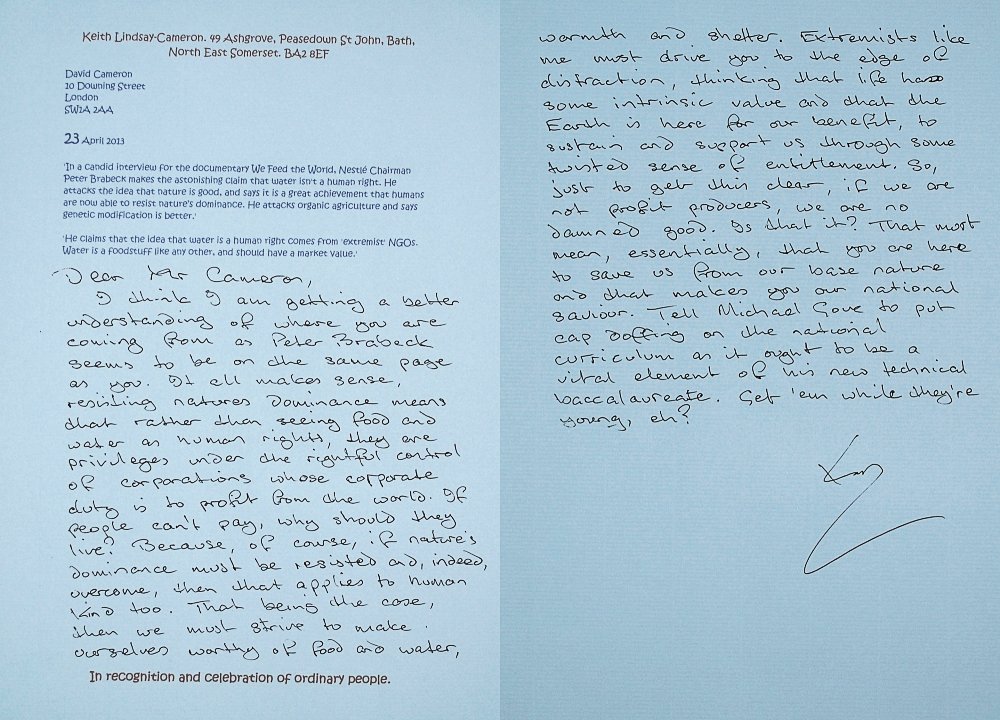 Keith Lindsay-Cameron. 49 Ashgrove, Peasedown St John, Bath,
North East Somerset. BA2 8EF
David Cameron
10 Downing Street
London
SW1A 2AA
23 April 2013
'In a candid interview for the documentary We Feed the World, Nestlé Chairman
Peter Brabeck makes the astonishing claim that water isn't a human right. He
attacks the idea that nature is good, and says it is a great achievement that humans
are now able to resist nature's dominance. He attacks organic agriculture and says
genetic modification is better.'
'He claims that the idea that water is a human right comes from 'extremist' NGOs.
Water is a foodstuff like any other, and should have a market value.'
Dear Mr Cameron,
I think I am getting a better
understanding of where you are
coming from as Peter Brabeck
seems to be on the same page
as you. It all makes sense,
resisting natures dominance means
that rather than seeing food and
water as human rights, they are
privileges under the rightful control
of corporations whose corporate
duty is to profit from the world. If
people can't pay, why should they
live? Because, of course, if nature's
dominance must be resisted and, indeed,
overcome, then that applies to human
kind too. That being the case,
then we must strive to make
ourselves worthy of food and water,
In recognition and celebration of ordinary people.
warmth and shelter. Extremists like
me must drive you to the edge of
distraction, thinking that life has
some intrinsic value and that the
Earth is here for our benefit, to
sustain and support us through some
twisted sense of entitlement. So,
just to get this clear, if we are
not profit producers, we are no
damned good. Is that it? That must
mean, essentially, that you are here
to save us from our base nature
and that makes you our national
saviour. Tell Michael Gove to put
cap doffing on the national
curriculum as it ought to be a
vital element of his new technical
baccalaureate. Get 'em while they're
young, eh?